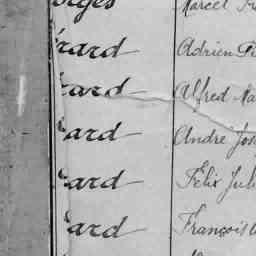 orges Marcel
rard Adrien
rard Alfred
ard André
ard Félix
ard François